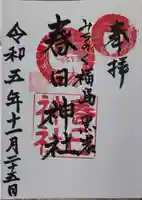 奉拝
みちのく福島
春日神社
令和五年十一月二十五日